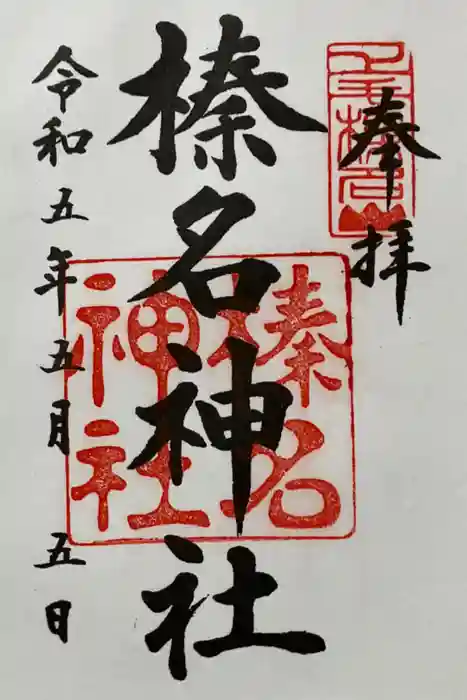 奉拝
榛名神社
令和五年五月五日
榛名神社